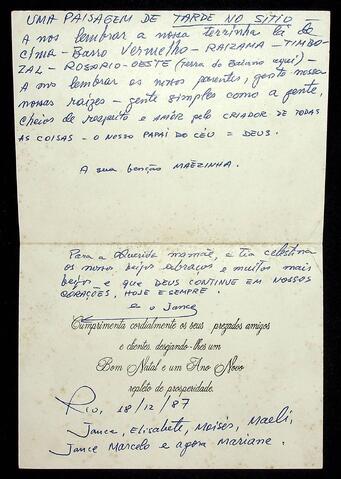 UMA PAISAGEM DE TARDE NO SITIO
A nos lembrar a nossa terrinha lá de
cima - Barro Vermelho - RAIZAMA - TIMBO-
ZAL - ROSARIO-OESTE (terra do Baiano aqui) -
A nos lembrar os nossos parentes, gente nossa
nossas raizes - gente simples como a gente,
cheios de respeito e AMOR pelo CRIADOR DE TODAS
AS COISAS - O NOSSO PAPAI DO CÉU = DEUS.
A sua benção MÃEZINHA.
Para a Querida mamãe, e tia celestina
os nossos beijos abraços e muitos mais
beijos - e que DEUS CONTINUE EM NOSSOS
CORAÇÕES, HOJE E SEMPRE.
e o Jance
Cumprimenta cordialmente os seus prezados amigos
e clientes, desejando-lhes um
Bom Natal e um Ano Novo
repleto de prosperidade.
Rio, 18/12/87
Jance, Elisabete, Moisés, Maeli,
Jance Marcelo e agora Mariane.